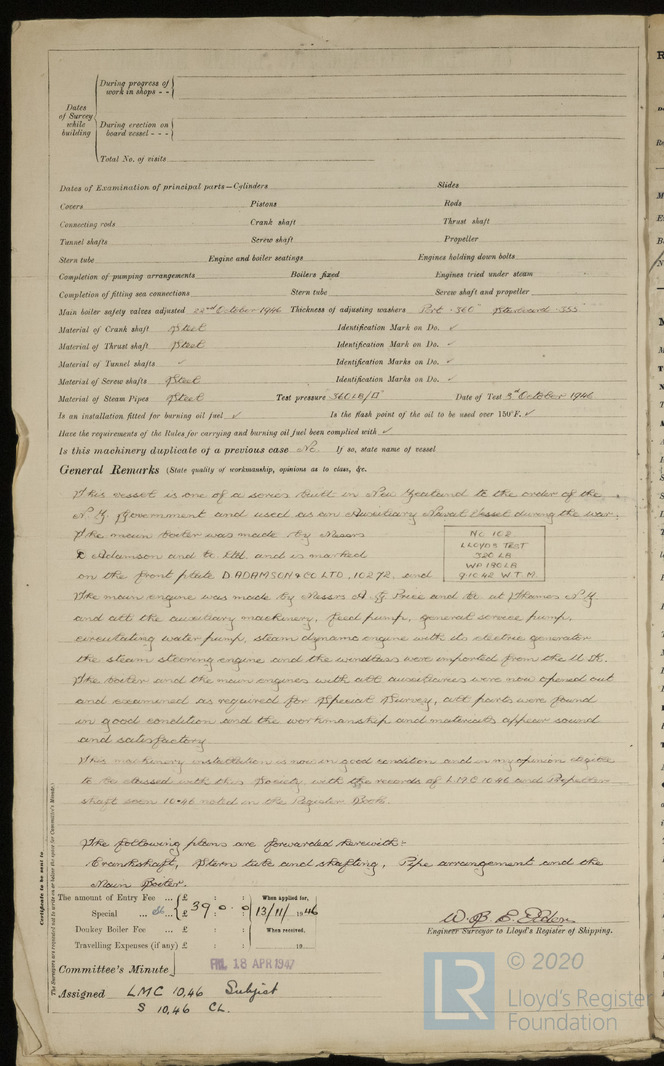 During progress of
work in shops - -
Dates
of Survey
while
building
During erection on
board vessel - - -
Total No. of visits
Dates of Examination of principal parts—Cylinders Slides
Covers Pistons Rods
Connecting rods Crank shaft Thrust shaft
Tunnel shafts Screw shaft Propeller
Stern tube Engine and boiler seatings Engines holding down bolts
Completion of pumping arrangements Boilers fixed Engines tried under steam
Completion of fitting sea connections Stern tube Screw shaft and propeller
Main boiler safety valves adjusted 22nd October 1946 Thickness of adjusting washers Port .360" Starboard .355"
Material of Crank shaft Steel Identification Mark on Do. ✓
Material of Thrust shaft Steel Identification Mark on Do. ✓
Material of Tunnel shafts ✓ Identification Marks on Do. ✓
Material of Screw shafts Steel Identification Marks on Do. ✓
Material of Steam Pipes Steel Test pressure 360 LB/□" Date of Test 3rd October 1946
Is an installation fitted for burning oil fuel ✓ Is the flash point of the oil to be used over 150°F. ✓
Have the requirements of the Rules for carrying and burning oil fuel been complied with ✓
Is this machinery duplicate of a previous case No. If so, state name of vessel
General Remarks (State quality of workmanship, opinions as to class, &c.
This vessel is one of a series built in New Zealand to the order of the
N.Z. Government and used as an Auxiliary Naval Vessel during the war.
The main boiler was made by Messrs
D Adamson and Co Ltd. and is marked
on the front plate D ADAMSON & CO LTD. 10272, and
No 102
LLOYDS TEST
320 LB
WP 180 LB
9.10.42 W.T.M.
The main engine was made by Messrs A & G Price and Co at Thames N.Z
and all the auxiliary machinery, feed pump, general service pump,
circulating water pump, steam dynamo engine with its electric generator
the steam steering engine and the windlass were imported from the U.K.
The boiler and the main engines with all auxiliaries were now opened out
and examined as required for Special Survey, all parts were found
in good condition and the workmanship and materials appear sound
and satisfactory
This machinery installation is now in good condition and in my opinion eligible
to be classed with this Society with the records of LMC 10.46 and Propeller
shaft seen 10.46 noted in the Register Book.
The following plans are forwarded herewith:-
Crankshaft, Stern tube and shafting, Pipe arrangement and the
Main Boiler.
Certificate to be sent to
The Surveyors are requested not to write on or below the space for Committee's Minute.
The amount of Entry Fee ... £ : : When applied for,
Special ... £ 39 . 0 . 0 13/11/1946
Donkey Boiler Fee ... £ : : When received,
Travelling Expenses (if any) £ : : 19
W. B. E. Elder
Engineer Surveyor to Lloyd's Register of Shipping.
Committee's Minute FRI. 18 APR 1947
Assigned LMC 10,46 Subject
S 10,46 CL.
© 2020
LR
Lloyd's Register
Foundation